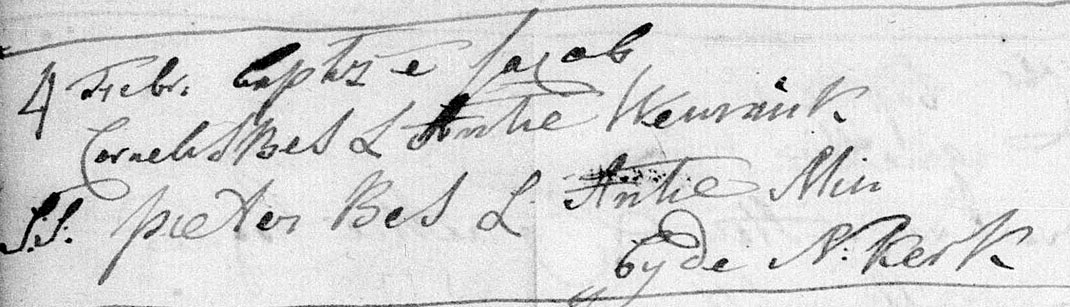 4 Febr. baptze Jacob
Cornelis Bes L Antie Weurink
S.S. pieter Bes L. Antie Min
by de N: Kerk